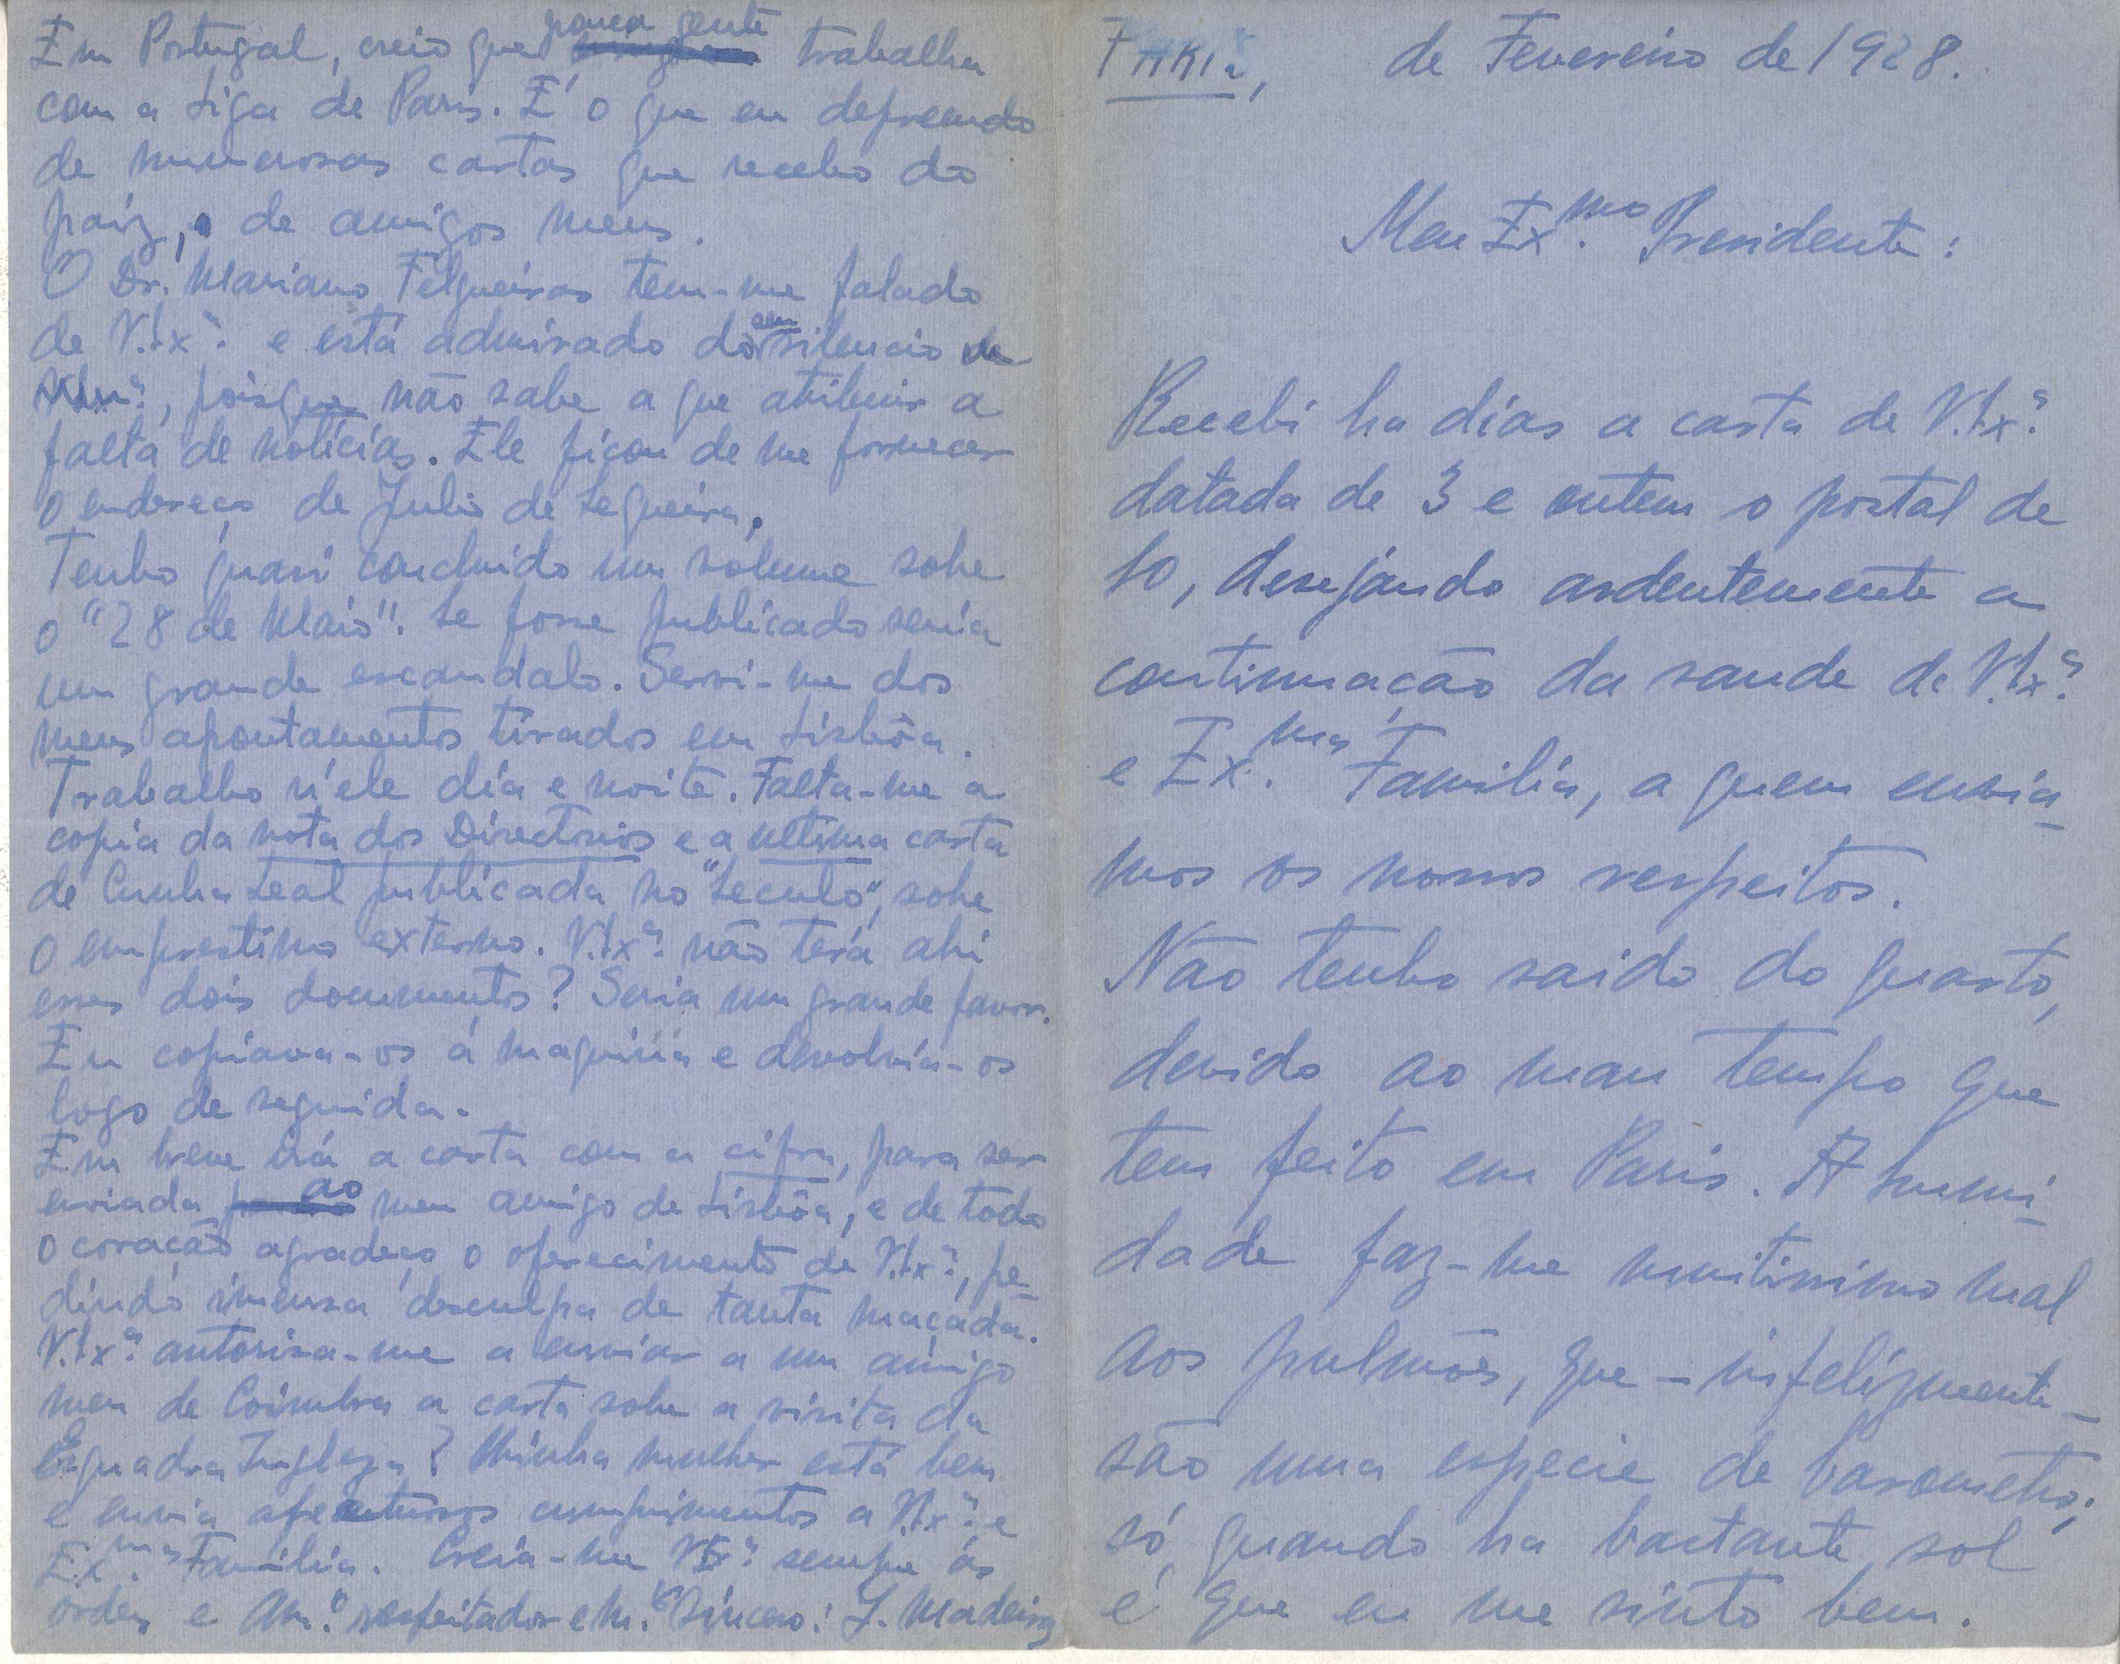 Paris, de Fevereiro de 1928.
Meu Ex.mo Presidente:
Recebi ha dias a carta de V. Ex.ª
datada de 3 e ontem o postal de
10, desejando ardentemente a
continuação da saude de V. Ex.ª
e Ex.ma Familia, a quem envia-
mos os nossos respeitos.
Não tenho saido do quarto,
devido ao mau tempo que
tem feito em Paris. A humi-
dade faz-me muitissimo mal
aos pulmões, que – infelizmente –
são uma especie de barometro;
só quando ha bastante sol
é que eu me sinto bem.
Em Portugal, creio que pouca gente trabalha
com a Liga de Paris. É o que eu depreendo
de numerosas cartas que recebo do
paiz, de amigos meus.
O Dr. Mariano Felgueiras tem-me falado
de V. Ex.ª e está admirado do seu silencio
poisque não sabe a que atribuir a
falta de noticias. Ele ficou de me fornecer
o endereço de Julio de Sequeira.
Tenho quasi concluido um volume sobre
o "28 de Maio". Se fosse publicado seria
um grande escandalo. Servi-me dos
meus apontamentos tirados em Lisbôa.
Trabalho n'ele dia e noite. Falta-me a
copia da nota dos Directorios e a ultima carta
de Cunha Leal publicada no "Seculo", sobre
o emprestimo externo. V. Ex.ª não terá ahi
esses dois documentos? Seria um grande favor.
Eu copiava-os á maquina e devolvia-os
logo de seguida.
Em breve irá a carta com a cifra, para ser
enviada ao meu amigo de Lisbôa, e de todo
o coração agradeço o oferecimento de V. Ex.ª, pe-
dindo imensa desculpa de tanta maçada.
V. Ex.ª autorisa-me a enviar a um amigo
meu de Coimbra a carta sobre a visita da
Esquadra Ingleza? Minha mulher está bem
e envia afectuosos cumprimentos a V. Ex.ª e
Ex.ma Familia. Creia-me V. Ex.ª sempre ás
ordens e Am.º respeitador e m.to sincero: J. Madeira